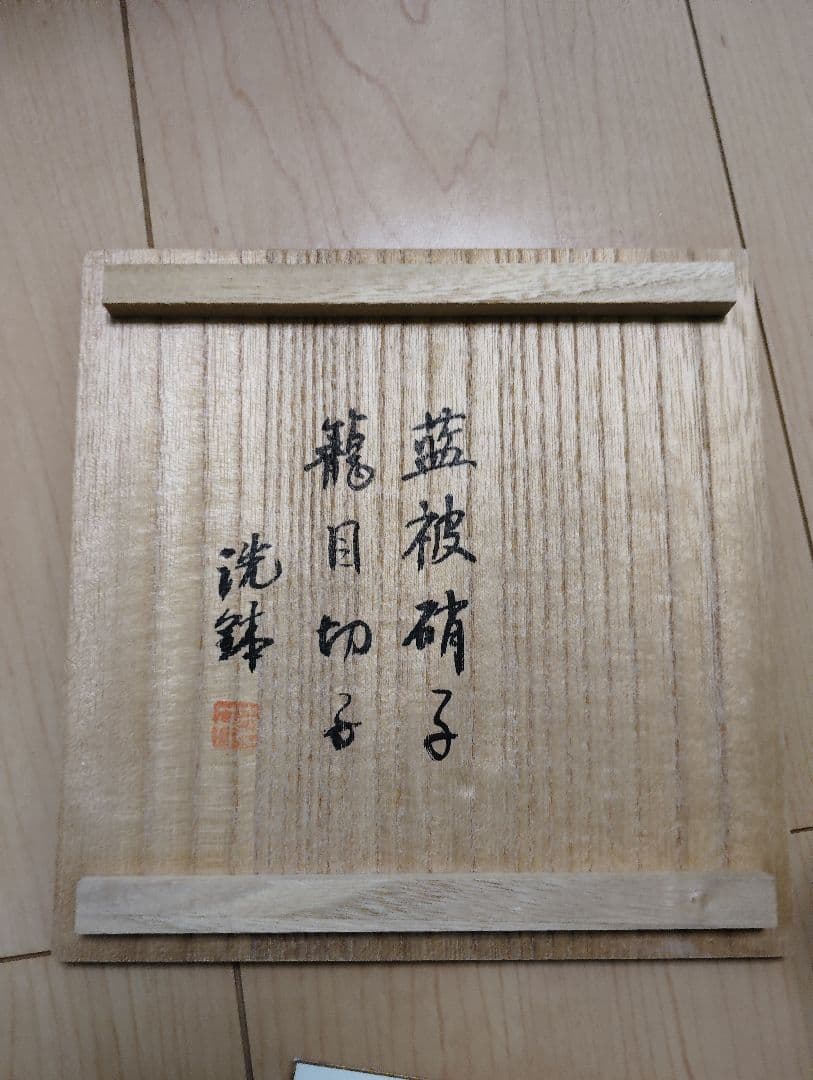 藍被硝子
籠目切子
洗鉢